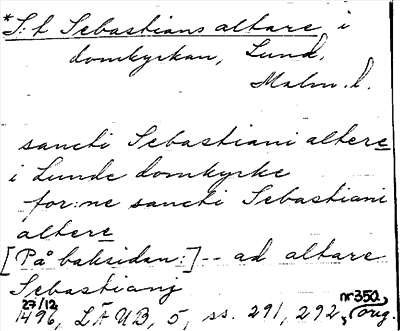 *S:t Sebastians altare i
domkyrkan, Lund,
Malm. l.
sancti Sebastiani altere
i Lunde domkyrke
for:ne sancti Sebastiani
altere
[På baksidan:] -- ad altare
Sebastianj
27/12 1496, LÄUB, 5, ss. 291, 292, nr 350, orig.